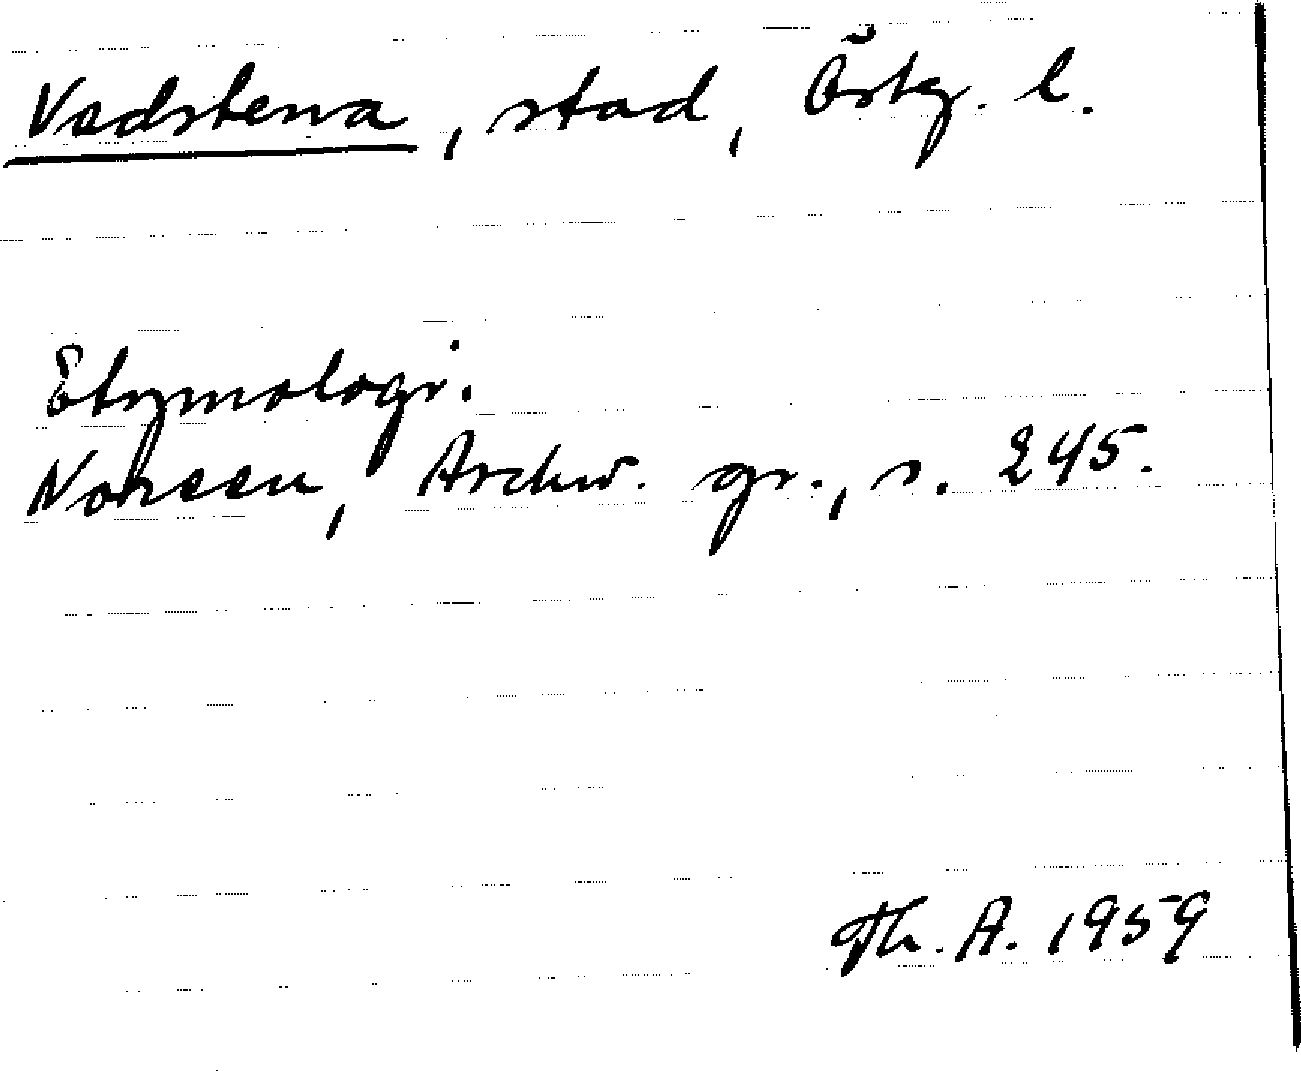 Vadstena, stad, Östg. l.
Etymologi.
Noreen, Archiv. gr., s. 245.
Th. A. 1959